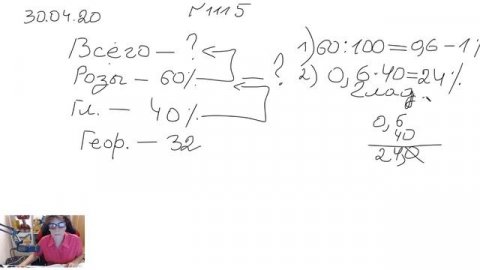 30.04.20
№1115
Всего – ?
Розы – 60% = ?
Гл. – 40%
Геор. – 32
1) 60:100=0,6 – 1%
2) 0,6·40=24%
глад.
0,6
40
24,0